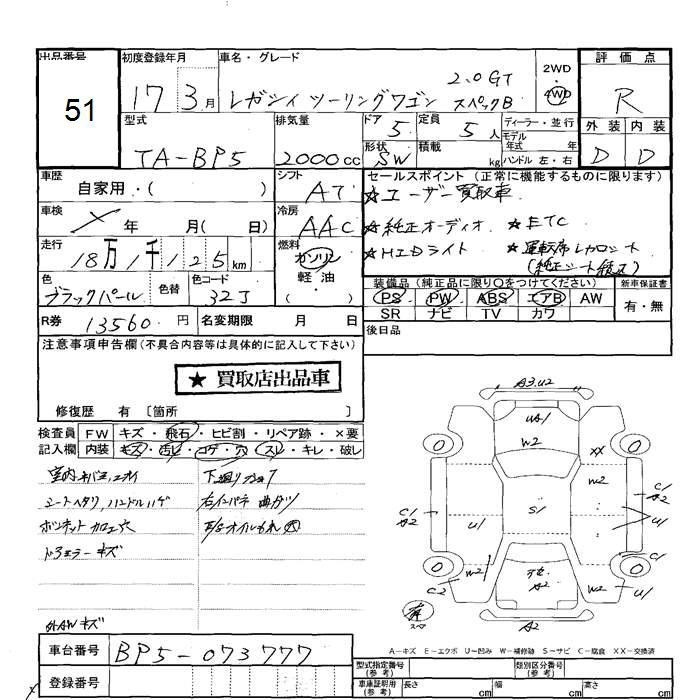 出品番号
51
初度登録年月
17 3月
車名・グレード
レガシィ ツーリングワゴン
2.0GT
スペックB
2WD
4WD
評価点
R
外装 内装
D D
型式
TA-BP5
排気量
2000cc
ドア 5
定員 5人
形状 SW
積載 kg
ディーラー・並行
モデル年式 年
ハンドル 左・右
車歴
自家用・( )
シフト
AT
車検
年 月( 日)
冷房
AAC
走行
18万1千125km
燃料
ガソリン
軽油
( )
色
ブラックパール
色替
色コード
32J
R券 13560円
名変期限 月 日
セールスポイント(正常に機能するものに限ります)
★ユーザー買取車
★純正オーディオ ★ETC
★HIDライト ★運転席レカロシート
装備品(純正品に限り○をつけてください)
PS PW ABS エアB AW
SR ナビ TV カワ
新車保証書
有・無
後日品
注意事項申告欄(不具合内容等は具体的に記入して下さい)
★ 買取店出品車
修復歴 有 〔箇所 〕
検査員記入欄
FW キズ・飛石・ヒビ割・リペア跡・×要
内装 キズ・汚レ・コゲ・穴・スレ・キレ・破レ
シートヘタリ,ハンドルハゲ
ボンネット加工穴
ドアミラーキズ
外AWキズ
A3.U2
UA1
W2
XX
W2
C1
A2
U1
S1
C1
A2
U1
C1
W2
W2
U1
C2
A2
A2
A-キズ E-エクボ U-凹み W-補修跡 S-サビ C-腐食 XX-交換済
車台番号
BP5-073777
登録番号
型式指定番号(参考)
類別区分番号(参考)
車庫証明用(参考)
長さ cm
幅 cm
高さ cm